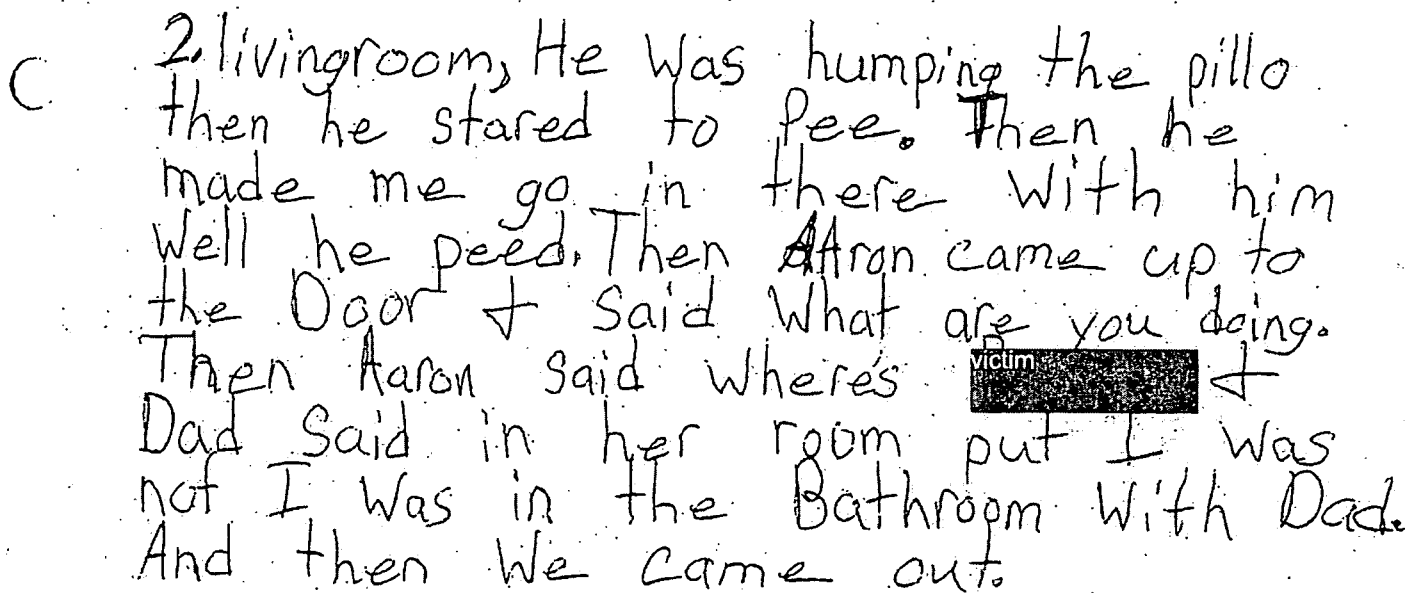 C 2. livingroom, He was humping the pillo
then he stared to Pee. Then he
made me go in there with him
Well he peed. Then Aaron came up to
the Door & Said What are you doing.
Then Aaron Said where's victim &
Dad Said in her room put I was
not I was in the Bathroom With Dad.
And then We came out.